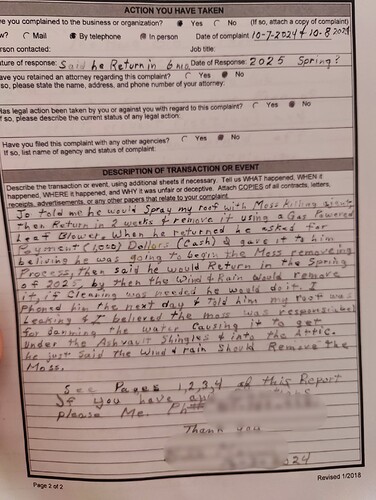 ACTION YOU HAVE TAKEN
e you complained to the business or organization? Yes No (If so, attach a copy of complaint)
w? Mail By telephone In person Date of complaint 10-7-2024 & 10-8 2024
rson contacted: Job title:
ature of response: Said he Return in 6 mo. Date of Response: 2025 Spring?
ave you retained an attorney regarding this complaint? Yes No
so, please state the name, address, and phone number of your attorney:
Has legal action been taken by you or against you with regard to this complaint? Yes No
If so, please describe the current status of any legal action:
Have you filed this complaint with any other agencies? Yes No
If so, list name of agency and status of complaint:
DESCRIPTION OF TRANSACTION OR EVENT
Describe the transaction or event, using additional sheets if necessary. Tell us WHAT HAPPENED, WHEN IT
happened, WHERE it happened, and WHY it was unfair or deceptive. Attach COPIES of all contracts, letters,
receipts, advertisements, or any other papers that relate to your complaint.
Jo told me he would Spray my roof with Moss Killing agent,
then Return in 2 weeks & remove it using a Gas Powered
Leaf Blower. When he returned he asked for
Payment (1,000) Dollars (Cash) & gave it to him
beliving he was going to begin the Moss removing
Process, Then said he would Return in the Spring
of 2025, by then the Wind & Rain Would remove
it, if Cleaning was needed he would do it. I
Phoned him the next day & told him my roof was
Leaking & I believed the moss was responsible
for damming the water Causing it to get
under the Ashvault Shingles & into the Attic.
he just Said the Wind & rain Should Remove the
Moss.
See Pages 1,2,3,4 of this Report
If you have any
please Me. Ph#
Thank you
024
Page 2 of 2
Revised 1/2018